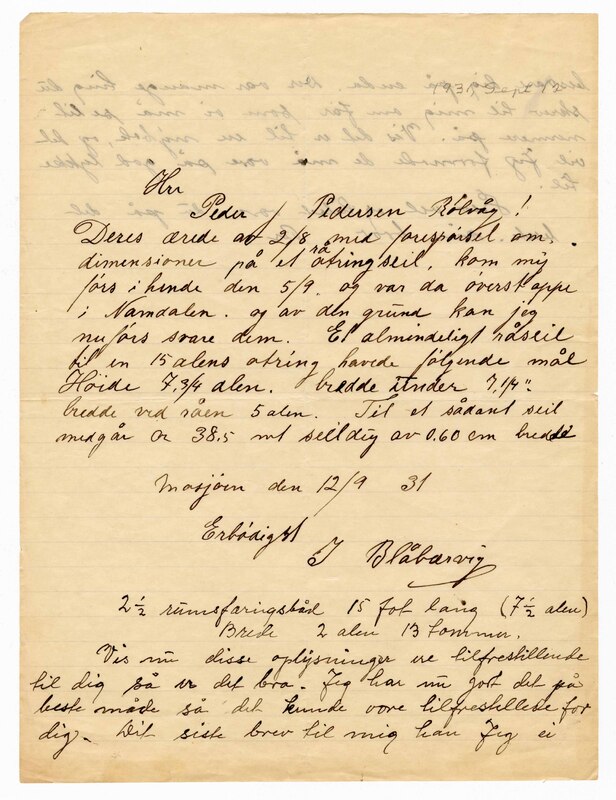 1931, Sept 12
Hrr
Peder / Pedersen Rölvåg!
Deres ærede av 2/8 med forespörsel om.
dimensioner på et rå otringseil, kom mig
förs i hende den 5/9. og var da överst oppe
i Namdalen. og av den grund kan jeg
nu förs svare dem. Et almindeligt råseil
til en 15 alens otring havede fölgende mål
Höide 7 3/4 alen. bredde under 7 1/4 "
bredde ved råen 5 alen. Til et sådant seil
medgår ca 38.5 mt seildug av 0.60 cm bredde
Mosjöen den 12/9 31
Erbödigst
J Blåbærvig
2 1/2 rumsfæringsbåd 15 fot lang (7 1/2 alen)
Brede 2 alen 13 tommer.
Vis nu disse oplysninger ere tilfrestillende
til dig så er det bra. Jeg har nu jort det på
beste måde så det kunde være tilfrestillese for
dig. Dit siste brev til mig har Jeg ei